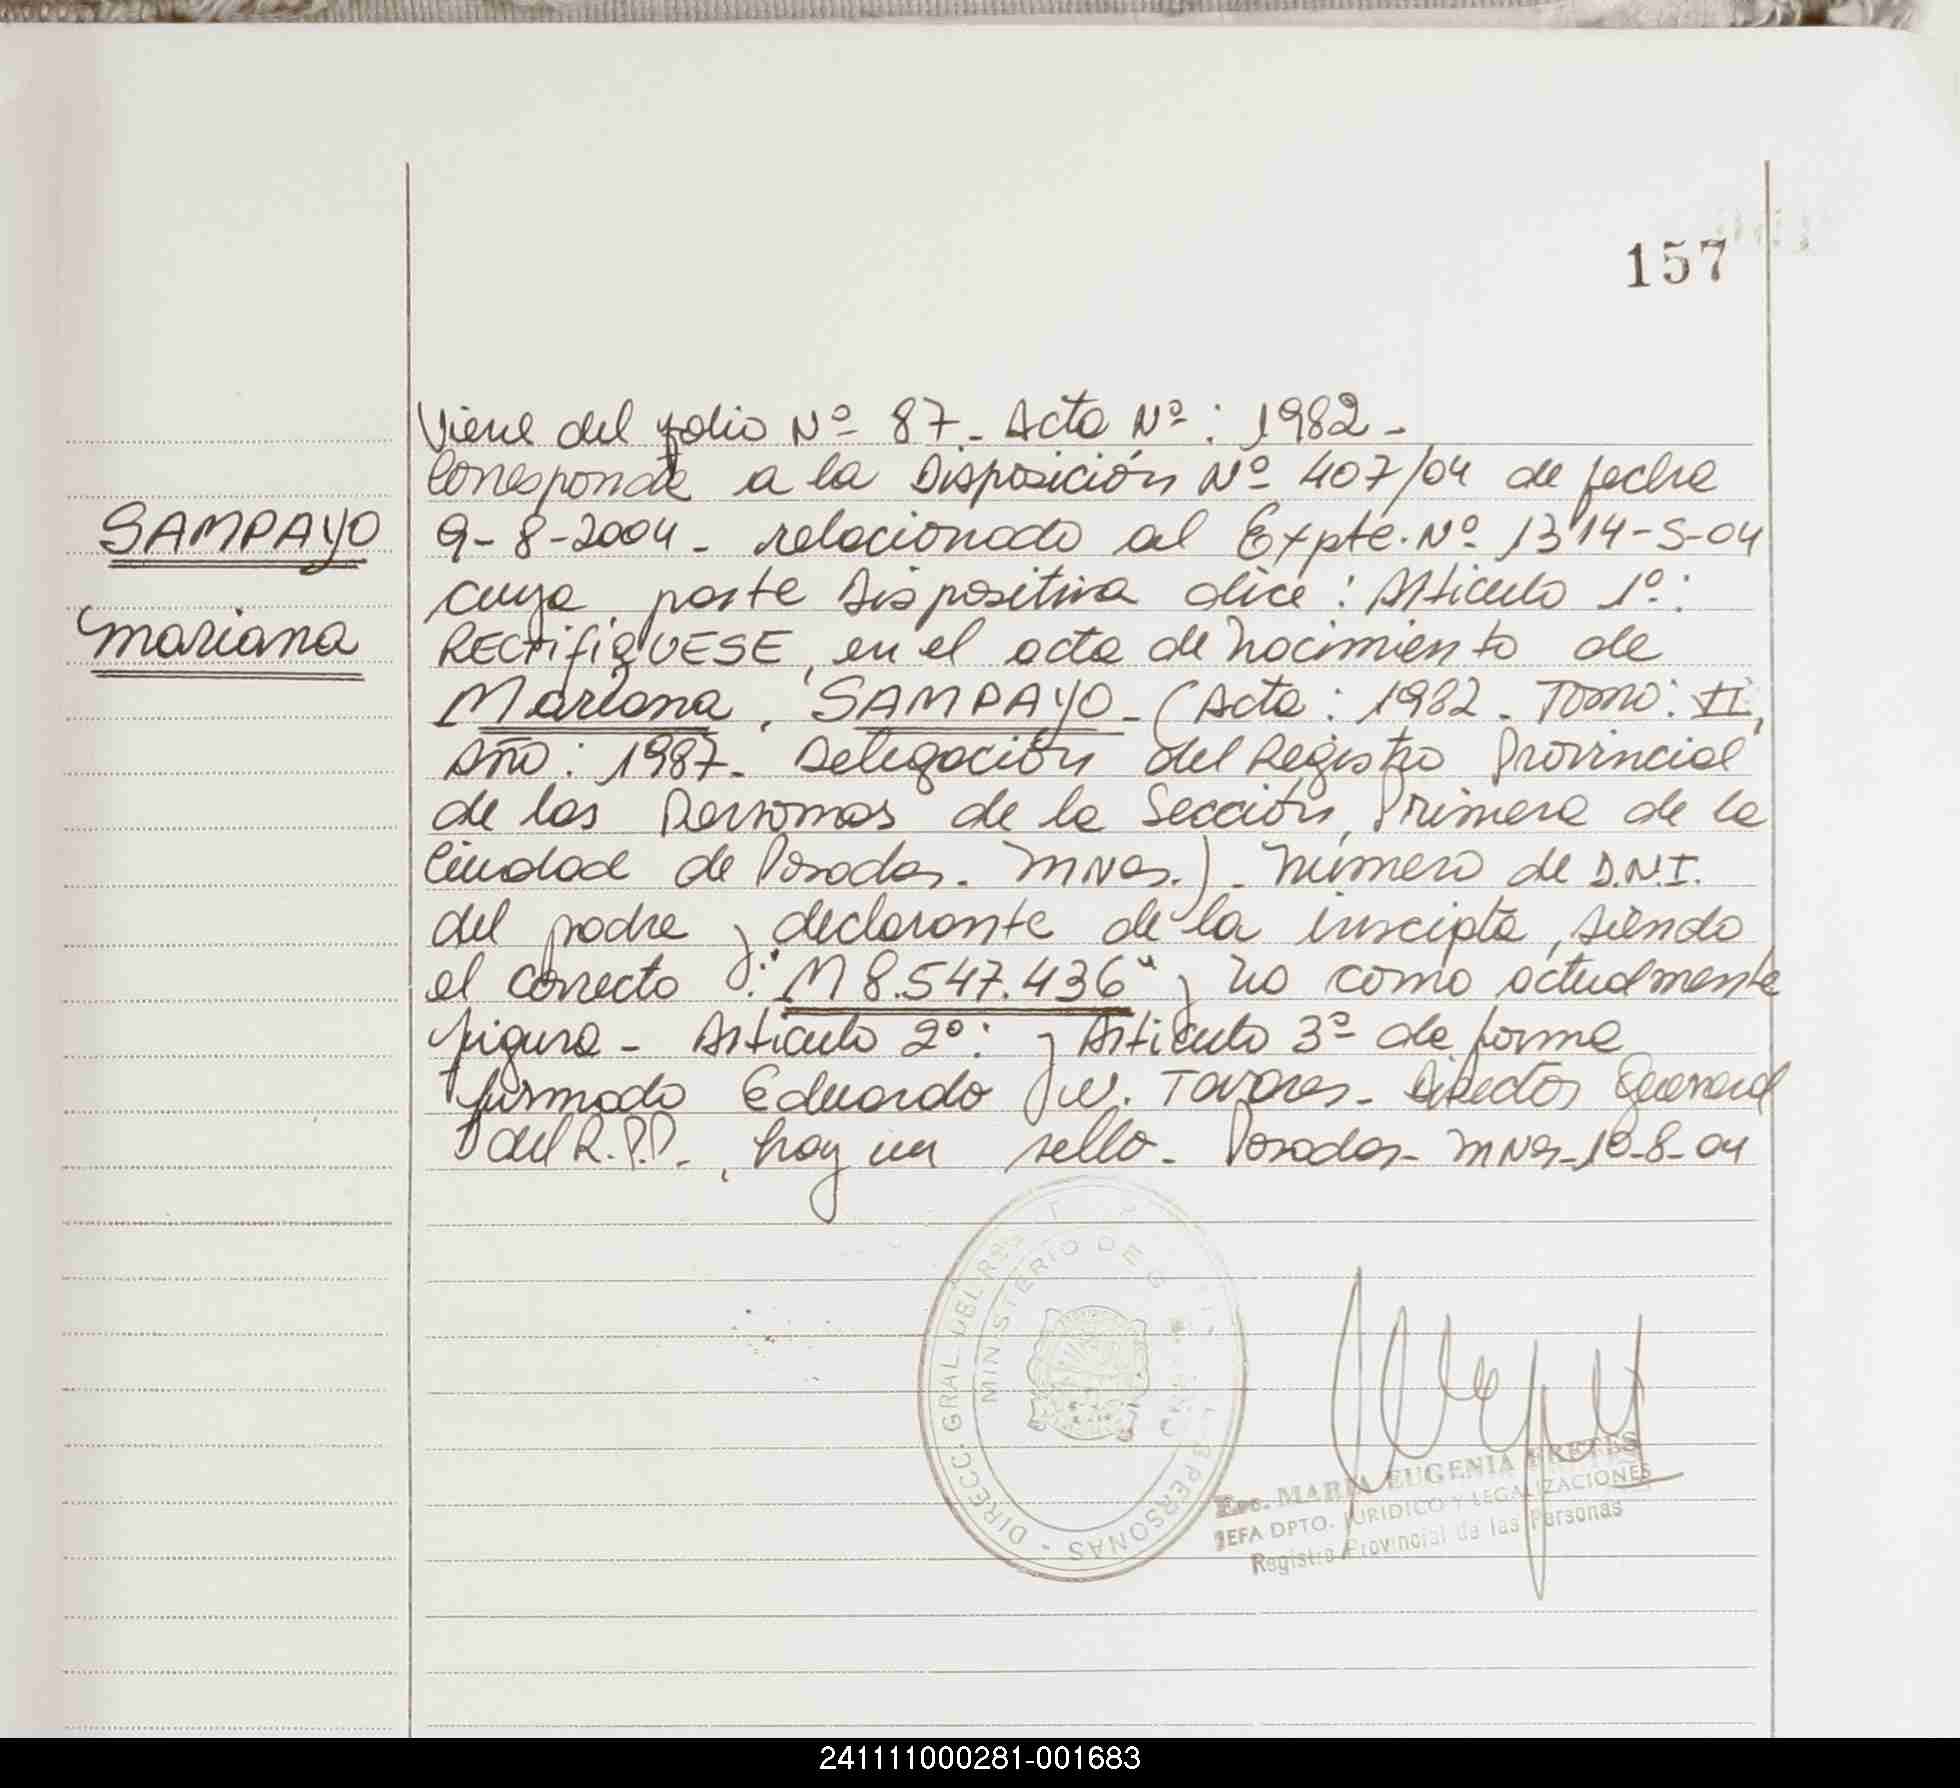 157
Viene del folio Nº 87_ Acta Nº: 1982_
Corresponde a la Disposición Nº 407/04 de fecha
SAMPAYO
9-8-2004_ relacionado al Expte. Nº 1314-S-04
cuya parte Dispositiva dice: Artículo 1º:
Mariana
RECTIFIQUESE, en el acta de Nacimiento de
Mariana, SAMPAYO_ (Acta: 1982_ Tomo: II,
Año: 1987_ Delegación del Registro Provincial
de las Personas de la Sección, Primera de la
Ciudad de Posadas_ Mnes.)_ Número de D.N.I.
del padre y declarante de la inscipta, siendo
el correcto: "M 8.547.436" y no como actualmente
figura_ Artículo 2º: y Artículo 3º de forma
firmado Eduardo N. Tavares_ Director General
del R.P.P_, hay un sello_ Posadas_ Mnes_10-8-04
DIRECC. GRAL. DEL REG. PERSONAS
MINISTERIO DE G
Esc. MARIA EUGENIA FRETES
JEFA DPTO. JURIDICO Y LEGALIZACIONES
Registro Provincial de las Personas
241111000281-001683